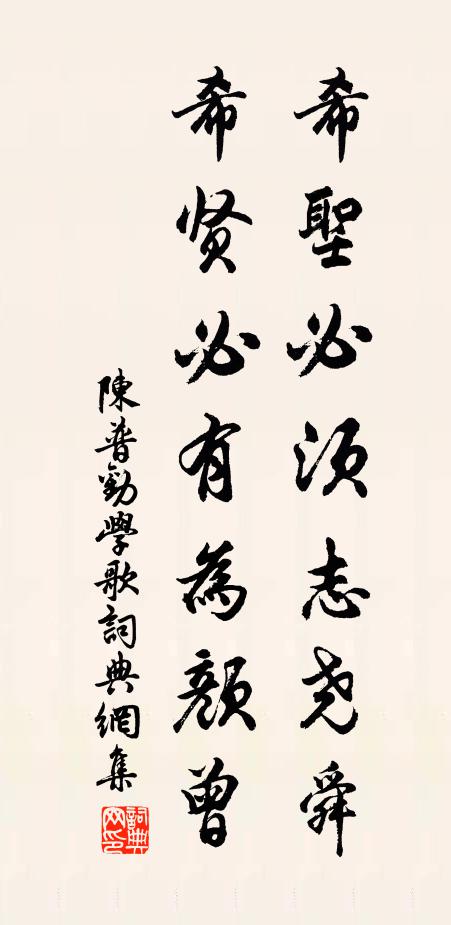 希聖必須志尧舜
希贤必有為顔曾
陳普勸學歌詞典網集
詞典网印